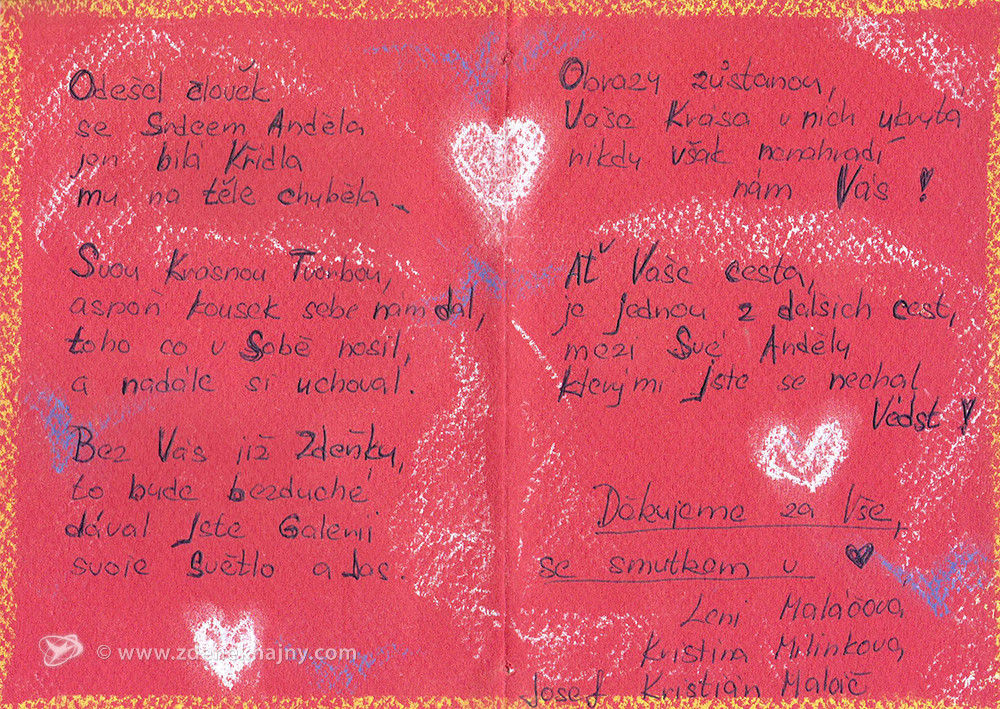 Odešel člověk
se Srdcem Anděla
jen bílá Křídla
mu na těle chyběla..
Svou Krásnou Tvorbou,
aspoň kousek sebe nám dal,
toho co v Sobě nosil,
a nadále si uchoval.
Bez Vás již Zdeňku,
to bude bezduché
dával Jste Galerii
svoje Světlo a Jas.
Obrazy zůstanou,
Vaše Krása v nich ukryta
nikdy však nenahradí
nám Vás!
Ať Vaše cesta,
je jednou z dalších cest,
mezi Své Anděly
kterými Jste se nechal
Vést!
Děkujeme za Vše,
se smutkem v ♥
Leni Maláčová
Kristina Milinková
Josef Kristián Maláč
© www.zdenekhajny.com